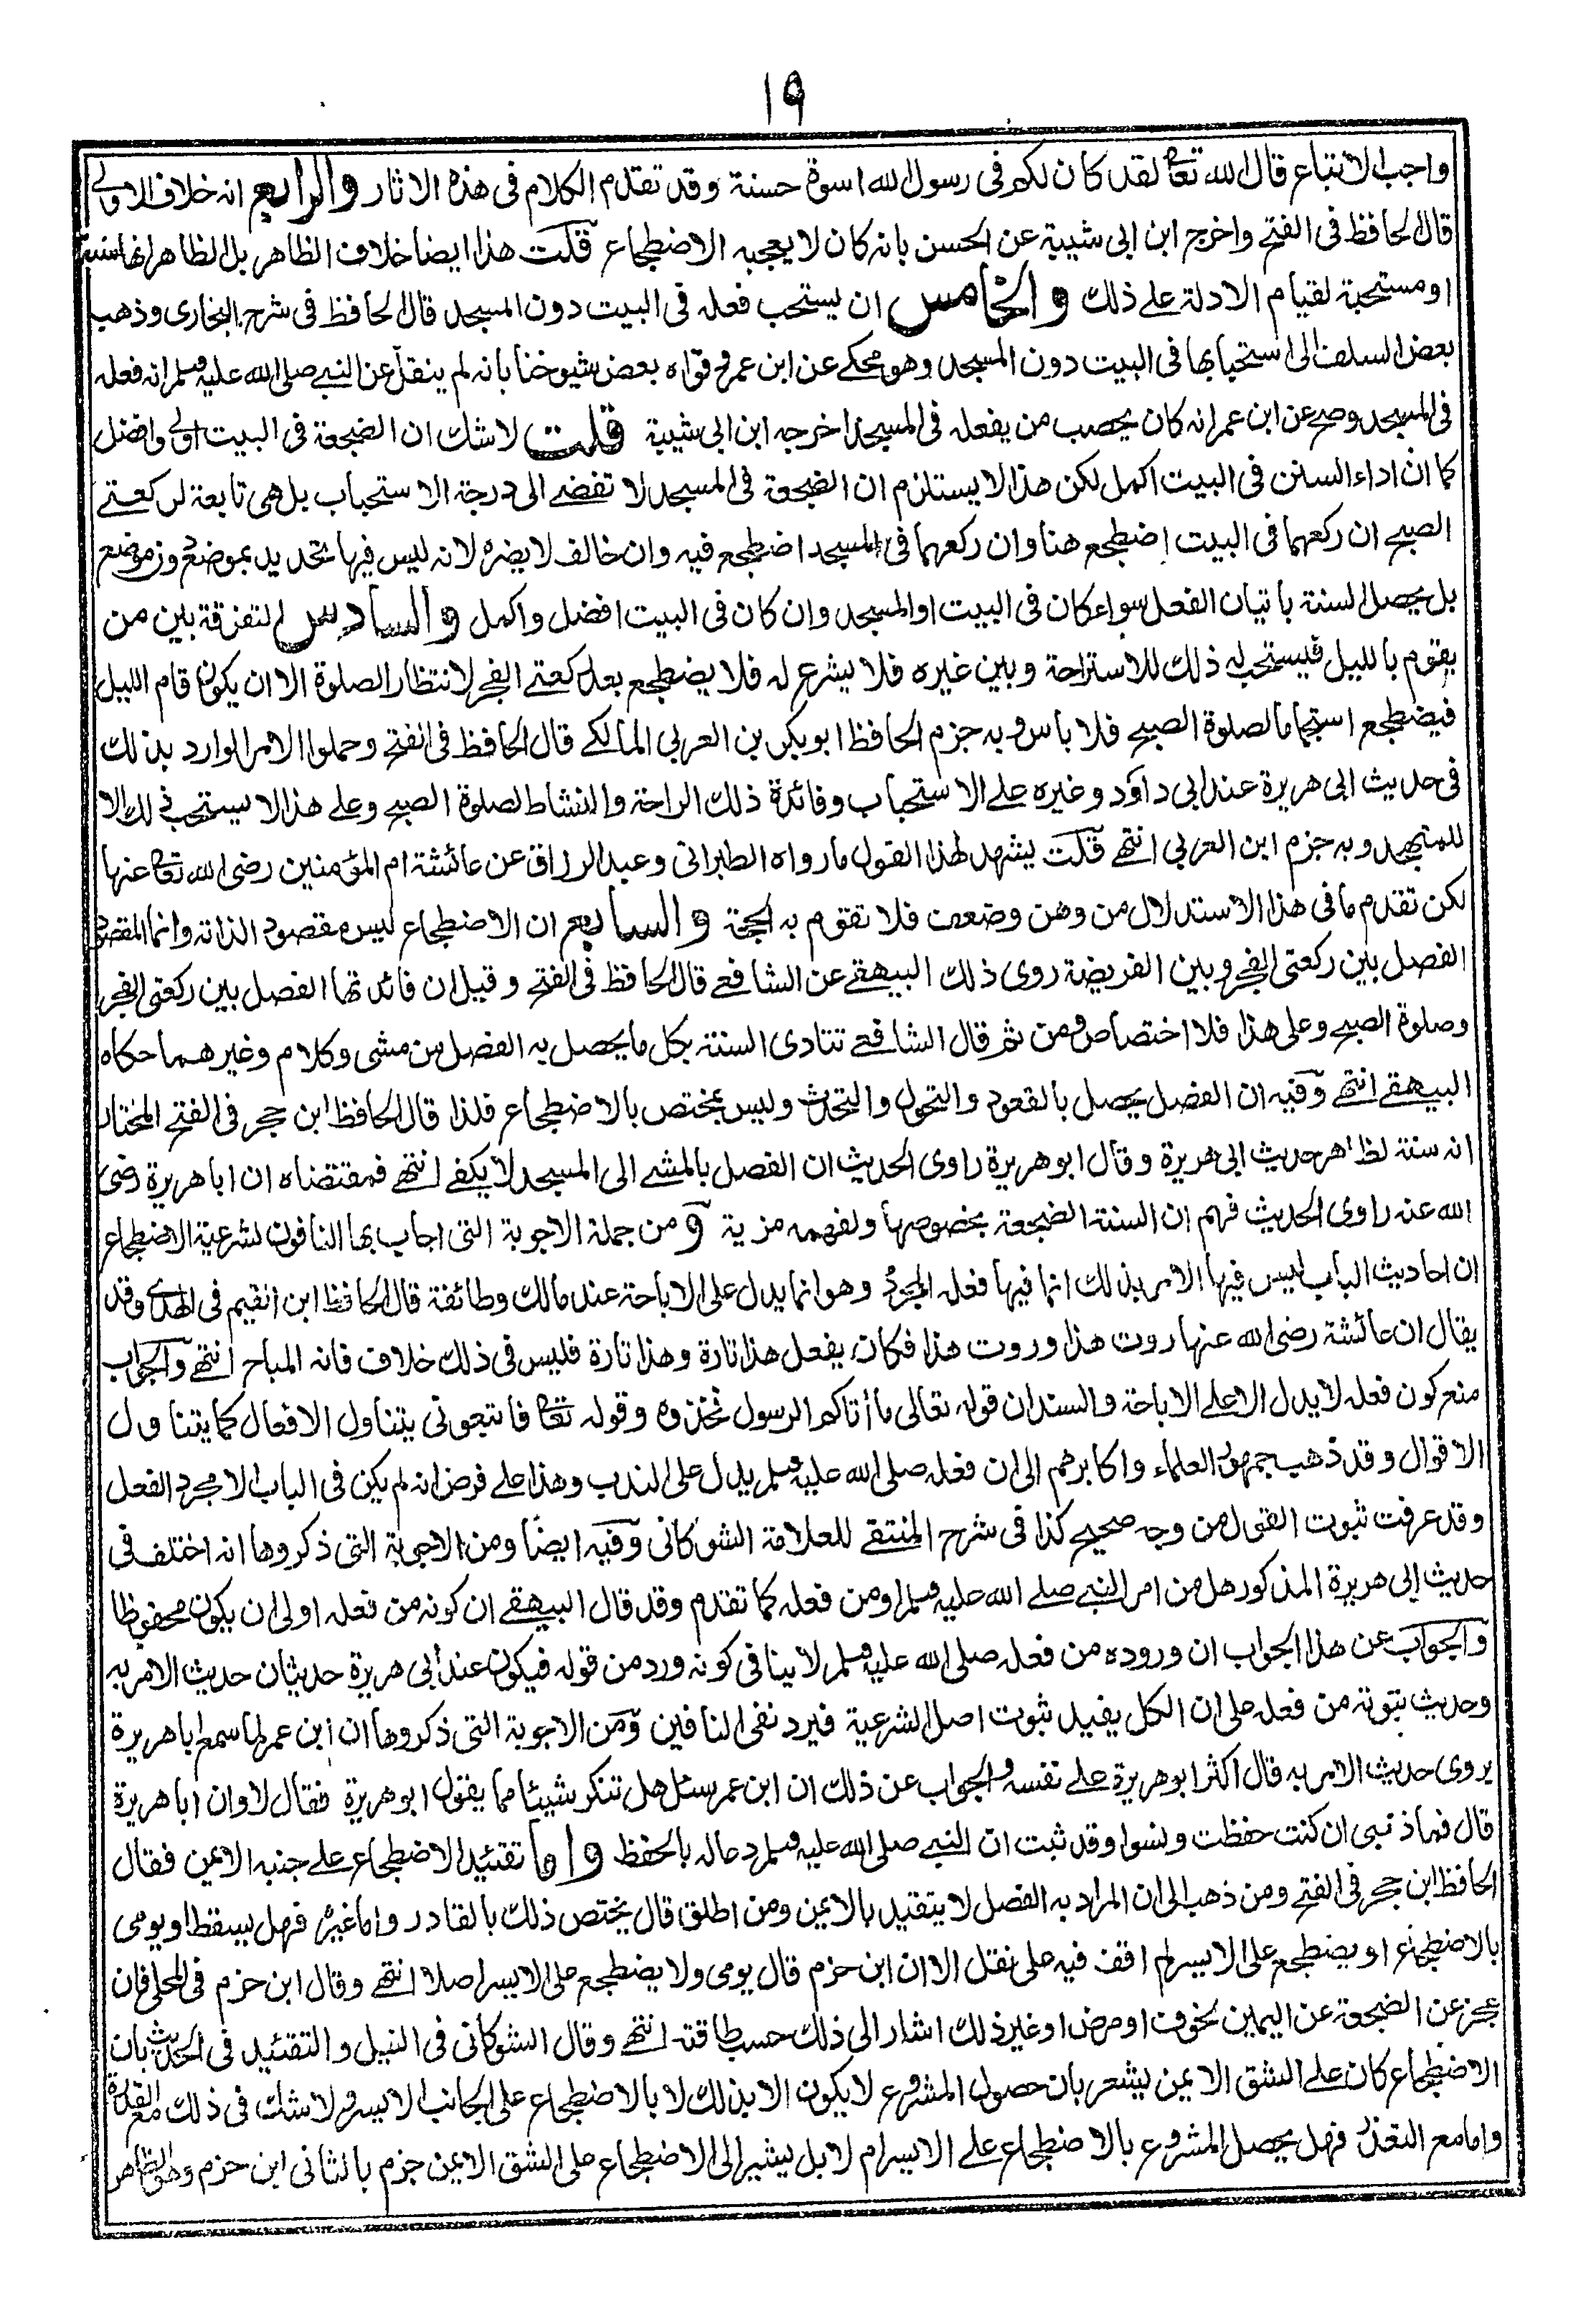 ١٩
واجب الاتباع قال الله تعا لقد كان لكم فى رسول الله اسوة حسنة وقد تقدم الكلام فى هذه الاثار والرابع انه خلاف الاولى
قال الحافظ فى الفتح واخرج ابن ابى شيبة عن الحسن بانه كان لا يعجبه الاضطجاع قلت هذا ايضا خلاف الظاهر بل الظاهر انها سنة
او مستحبة لقيام الادلة على ذلك والخامس ان يستحب فعله فى البيت دون المسجد قال الحافظ فى شرح البخارى وذهب
بعض السلف الى استحبابها فى البيت دون المسجد وهو محكى عن ابن عمر وقواه بعض شيوخنا بانه لم ينقل عن النبى صلى الله عليه وسلم انه فعله
فى المسجد وصح عن ابن عمر انه كان يحصب من يفعله فى المسجد اخرجه ابن ابى شيبة قلت لاشك ان الضجعة فى البيت اولى وافضل
كما ان اداء السنن فى البيت اكمل لكن هذا لا يستلزم ان الضجعة فى المسجد لا تفضى الى درجة الاستحباب بل هى تابعة لركعتى
الصبح ان ركعهما فى البيت اضطجع هنا وان ركعهما فى المسجد اضطجع فيه وان خالف لا يضره لانه ليس فيها تحديد بموضع دون موضع
بل يحصل السنة باتيان الفعل سواء كان فى البيت او المسجد وان كان فى البيت افضل واكمل والسادس التفرقة بين من
يقوم بالليل فيستحب له ذلك للاستراحة وبين غيره فلا يشرع له فلا يضطجع بعد ركعتى الفجر لانتظار الصلوة الا ان يكون قام الليل
فيضطجع استجماما لصلوة الصبح فلا باس وبه جزم الحافظ ابو بكر بن العربى المالكى قال الحافظ فى الفتح وحملوا الامر الوارد بذلك
فى حديث ابى هريرة عند ابى داود وغيره على الاستحباب وفائدة ذلك الراحة والنشاط لصلوة الصبح وعلى هذا لا يستحب ذلك الا
للمتهجد وبه جزم ابن العربى انتهى قلت يشهد لهذا القول ما رواه الطبرانى وعبد الرزاق عن عائشة ام المؤمنين رضى الله تعا عنها
لكن تقدم ما فى هذا الاستدلال من وهن وضعف فلا تقوم به الحجة والسابع ان الاضطجاع ليس مقصود الذاته وانما المقصود
الفصل بين ركعتى الفجر وبين الفريضة روى ذلك البيهقى عن الشافعى قال الحافظ فى الفتح وقيل ان فائدتها الفصل بين ركعتى الفجر
وصلوة الصبح وعلى هذا فلا اختصاص ومن ثم قال الشافعى تتادى السنة بكل ما يحصل به الفصل من مشى وكلام وغيرهما حكاه
البيهقى انتهى وفيه ان الفصل يحصل بالقعود والتحول والتحدث وليس بمختص بالاضطجاع فلذا قال الحافظ ابن حجر فى الفتح المختار
انه سنة لظاهر حديث ابى هريرة وقال ابو هريرة راوى الحديث ان الفصل بالمشى الى المسجد لا يكفى انتهى فمقتضاه ان ابا هريرة رضى
الله عنه راوى الحديث فهم ان السنة الضجعة بخصوصها ولفهمه مزية ومن جملة الاجوبة التى اجاب بها النافون لشرعية الاضطجاع
ان احاديث الباب ليس فيها الامر بذلك انما فيها فعله المجرد وهو انما يدل على الاباحة عند مالك وطائفة قال الحافظ ابن القيم فى الهدى وقد
يقال ان عائشة رضى الله عنها روت هذا وروت هذا فكان يفعل هذا تارة وهذا تارة فليس فى ذلك خلاف فانه المباح انتهى والجواب
منع كون فعله لا يدل الا على الاباحة والسند ان قوله تعالى ما أتاكم الرسول فخذوه وقوله تعا فاتبعونى يتناول الافعال كما يتناول
الاقوال وقد ذهب جمهور العلماء واكابرهم الى ان فعله صلى الله عليه وسلم يدل على الندب وهذا على فرض انه لم يكن فى الباب الا مجرد الفعل
وقد عرفت ثبوت القول من وجه صحيح كذا فى شرح المنتقى للعلامة الشوكانى وفيه ايضًا ومن الاجوبة التى ذكروها انه اختلف فى
حديث ابى هريرة المذكور هل من امر النبى صلى الله عليه وسلم او من فعله كما تقدم وقد قال البيهقى ان كونه من فعله اولى ان يكون محفوظا
والجواب عن هذا الجواب ان وروده من فعله صلى الله عليه وسلم لا ينافى كونه ورد من قوله فيكون عند ابى هريرة حديثان حديث الامر به
وحديث ثبوته من فعله على ان الكل يفيد ثبوت اصل الشرعية فيرد نفى النافين ومن الاجوبة التى ذكروها ان ابن عمر لما سمع ابا هريرة
يروى حديث الامر به قال اكثر ابو هريرة على نفسه والجواب عن ذلك ان ابن عمر سئل هل تنكر شيئا مما يقول ابو هريرة فقال لا وان ابا هريرة
قال فما ذنبى ان كنت حفظت ونسوا وقد ثبت ان النبى صلى الله عليه وسلم دعا له بالحفظ واما تقئيد الاضطجاع على جنبه الايمن فقال
الحافظ ابن حجر فى الفتح ومن ذهب الى ان المراد به الفصل لا يتقيد بالايمن ومن اطلق قال يختص ذلك بالقادر واما غيره فهل يسقط او يومى
بالاضطجاع او يضطجع على الايسر لم اقف فيه على نقل الا ان ابن حزم قال يومى ولا يضطجع على الايسر اصلا انتهى وقال ابن حزم فى المحلى فان
عجز عن الضجعة عن اليمين لخوف او مرض او غير ذلك اشار الى ذلك حسب طاقته انتهى وقال الشوكانى فى النيل والتقئيد فى الحديث بان
الاضطجاع كان على الشق الايمن يشعر بان حصول المشروع لا يكون الا بذلك لا بالاضطجاع على الجانب الايسر ولا شك فى ذلك مع القدرة
واما مع التعذر فهل يحصل المشروع بالاضطجاع على الايسر ام لا بل يشير الى الاضطجاع على الشق الايمن جزم بالثانى ابن حزم وهو الظاهر